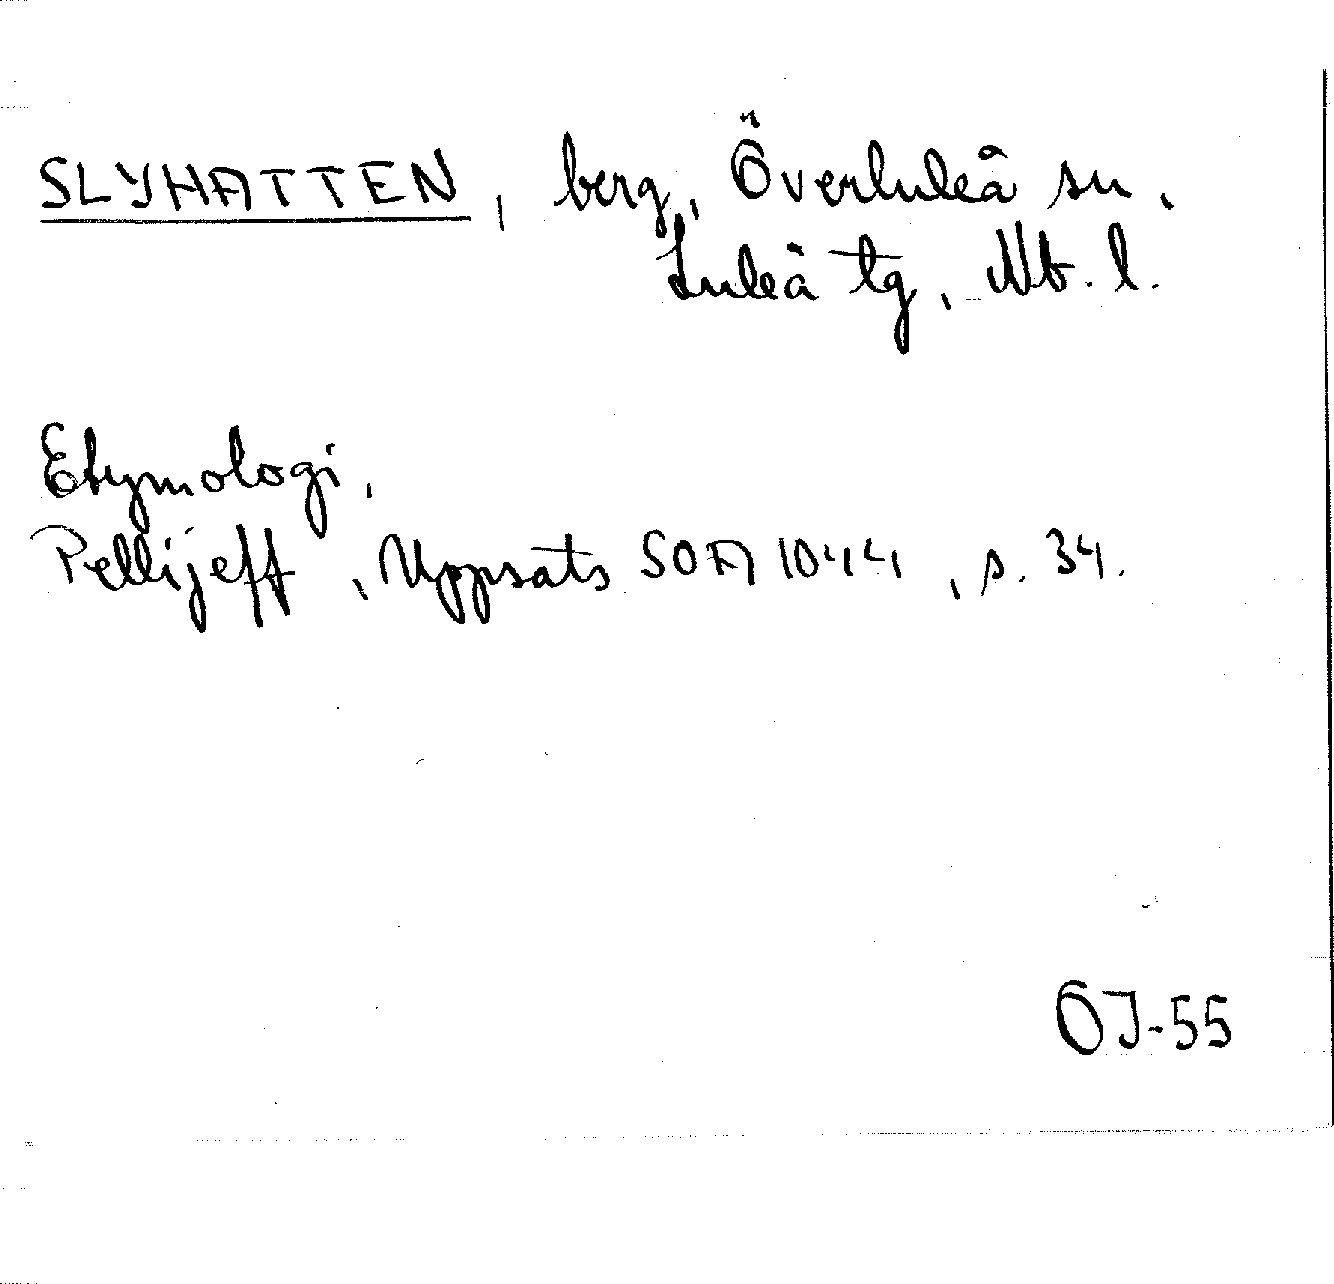 SLYHATTEN, berg, Överluleå sn,
Luleå tg, Nb. l.
Etymologi,
Pellijeff, Uppsats SOFA 1044, s. 34.
ÖJ-55